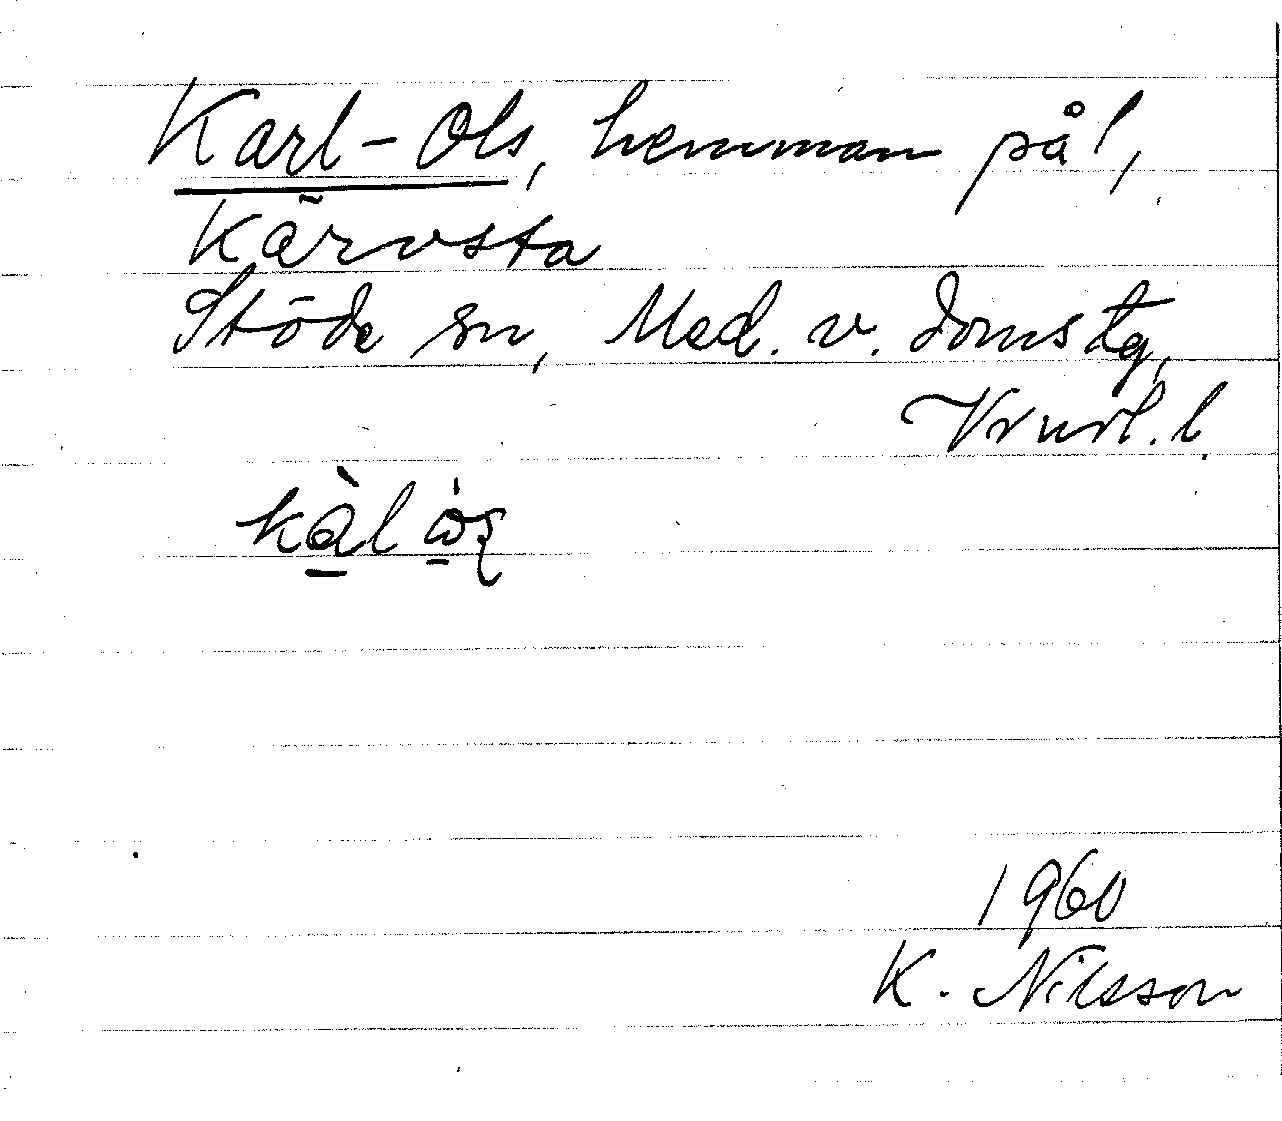 Karl-Ols, hemman på,
Kärvsta
Stöde sn, Med. v. domstg,
Vrnrl. l.
1960
K. Nilsson